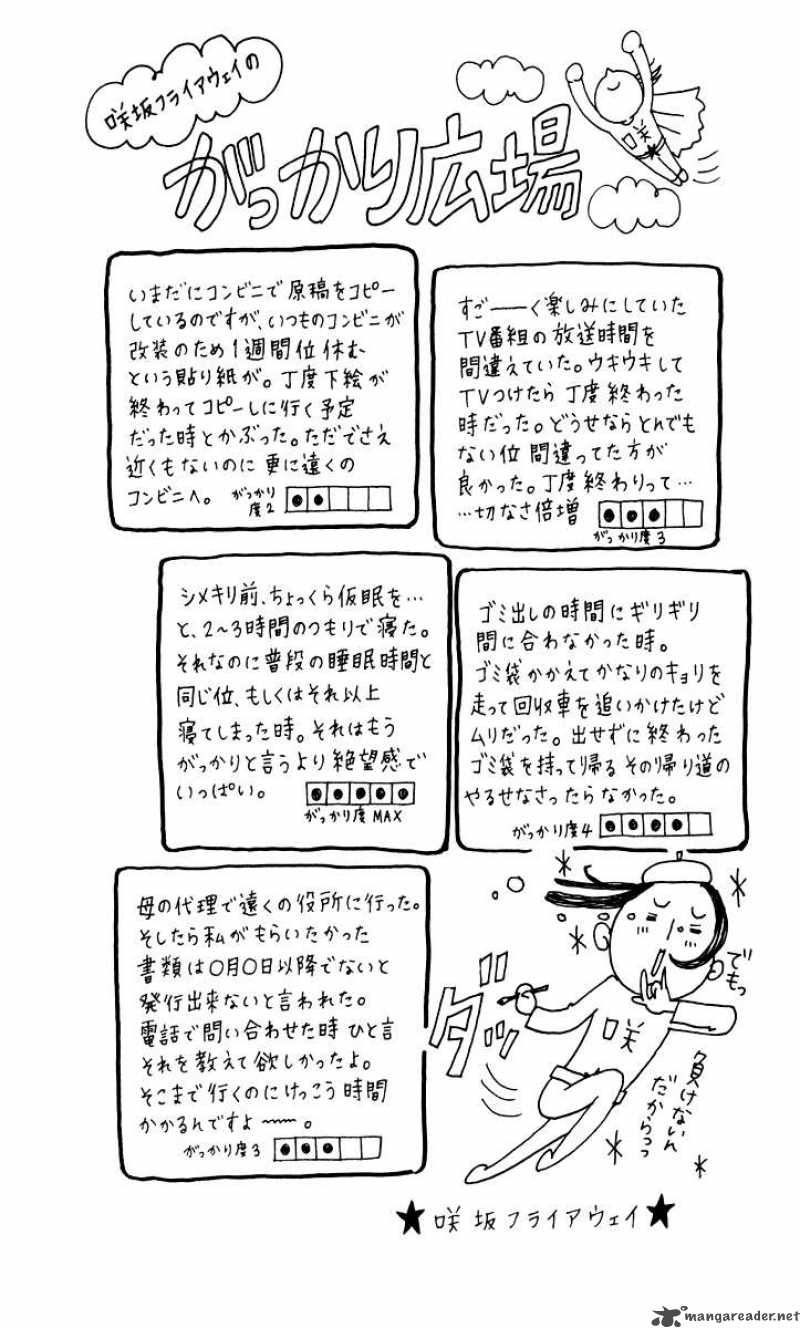 咲坂フライアウェイの
がっかり広場
咲
いまだにコンビニで原稿をコピー
しているのですが、いつものコンビニが
改装のため1週間位休む
という貼り紙が。丁度下絵が
終わってコピーしに行く予定
だった時とかぶった。ただでさえ
近くもないのに更に遠くの
コンビニへ。
がっかり
度2
すご――く楽しみにしていた
TV番組の放送時間を
間違えていた。ウキウキして
TVつけたら丁度終わった
時だった。どうせならとんでも
ない位間違ってた方が
良かった。丁度終わりって…
…切なさ倍増
がっかり度3
シメキリ前、ちょっくら仮眠を…
と、2~3時間のつもりで寝た。
それなのに普段の睡眠時間と
同じ位、もしくはそれ以上
寝てしまった時。それはもう
がっかりと言うより絶望感で
いっぱい。
がっかり度MAX
ゴミ出しの時間にギリギリ
間に合わなかった時。
ゴミ袋かかえてかなりのキョリを
走って回収車を追いかけたけど
ムリだった。出せずに終わった
ゴミ袋を持って帰るその帰り道の
やるせなさったらなかった。
がっかり度4
母の代理で遠くの役所に行った。
そしたら私がもらいたかった
書類は〇月〇日以降でないと
発行出来ないと言われた。
電話で問い合わせた時ひと言
それを教えて欲しかったよ。
そこまで行くのにけっこう時間
かかるんですよ〜〜。
がっかり度3
ダッ
咲
でもっ
負けないん
だからっっ
★咲坂フライアウェイ★
mangareader.net